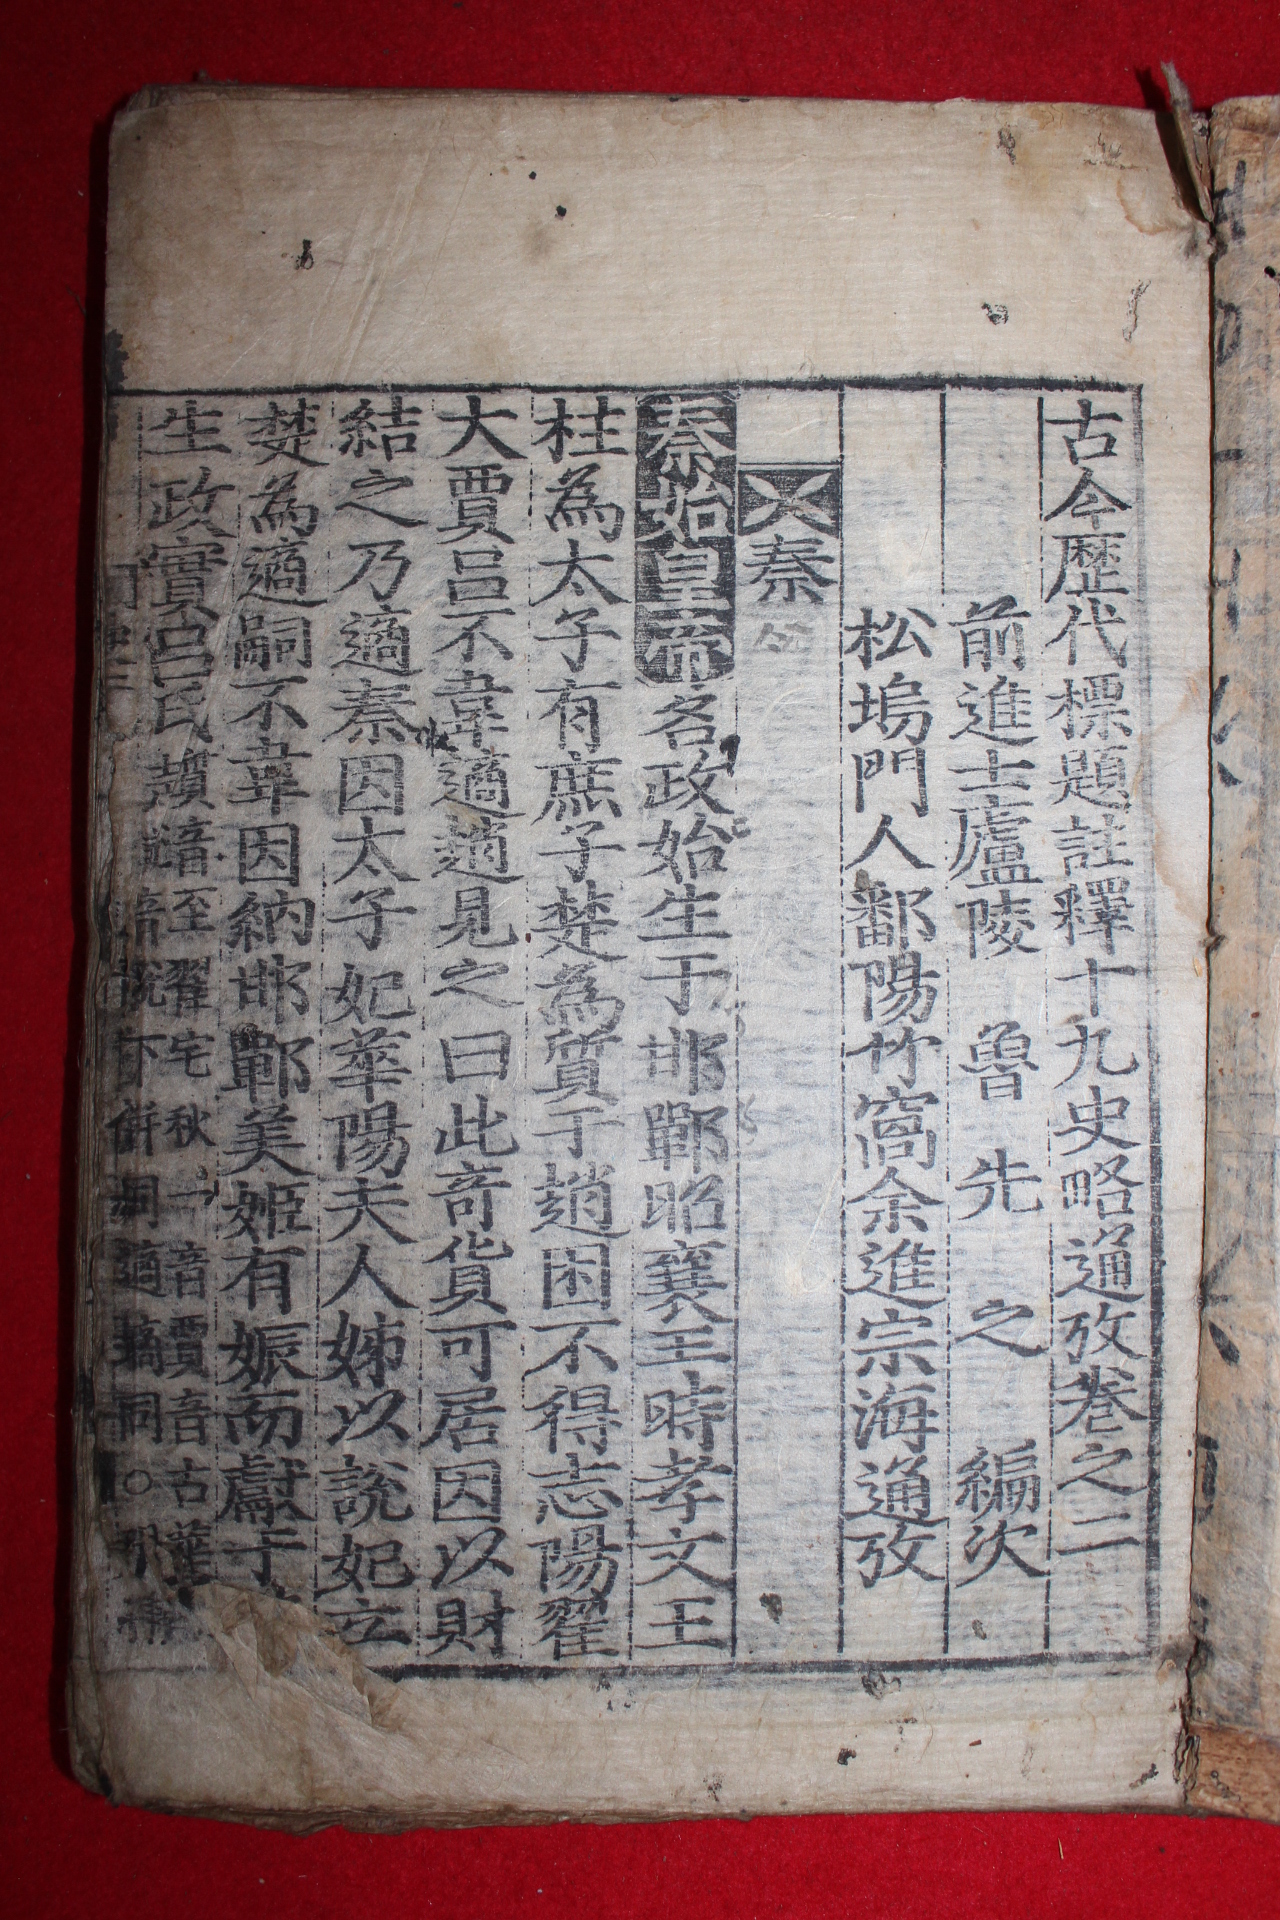 古今歷代標題註釋十九史略通攷卷之二
前進士廬陵 魯 先 之 編次
松塢門人鄱陽竹窩余進宗海通攷
秦
秦始皇帝名政始生于邯鄲昭襄王時孝文王
柱為太子有庶子楚為質于趙困不得志陽翟
大賈呂不韋適趙見之曰此奇貨可居因以財
結之乃適秦因太子妃華陽夫人姊以說妃立
楚為適嗣不韋因納邯鄲美姬有娠而獻于
生政實呂氏 質音至翟宅秋二音賈音古華
下併同適嫡同○